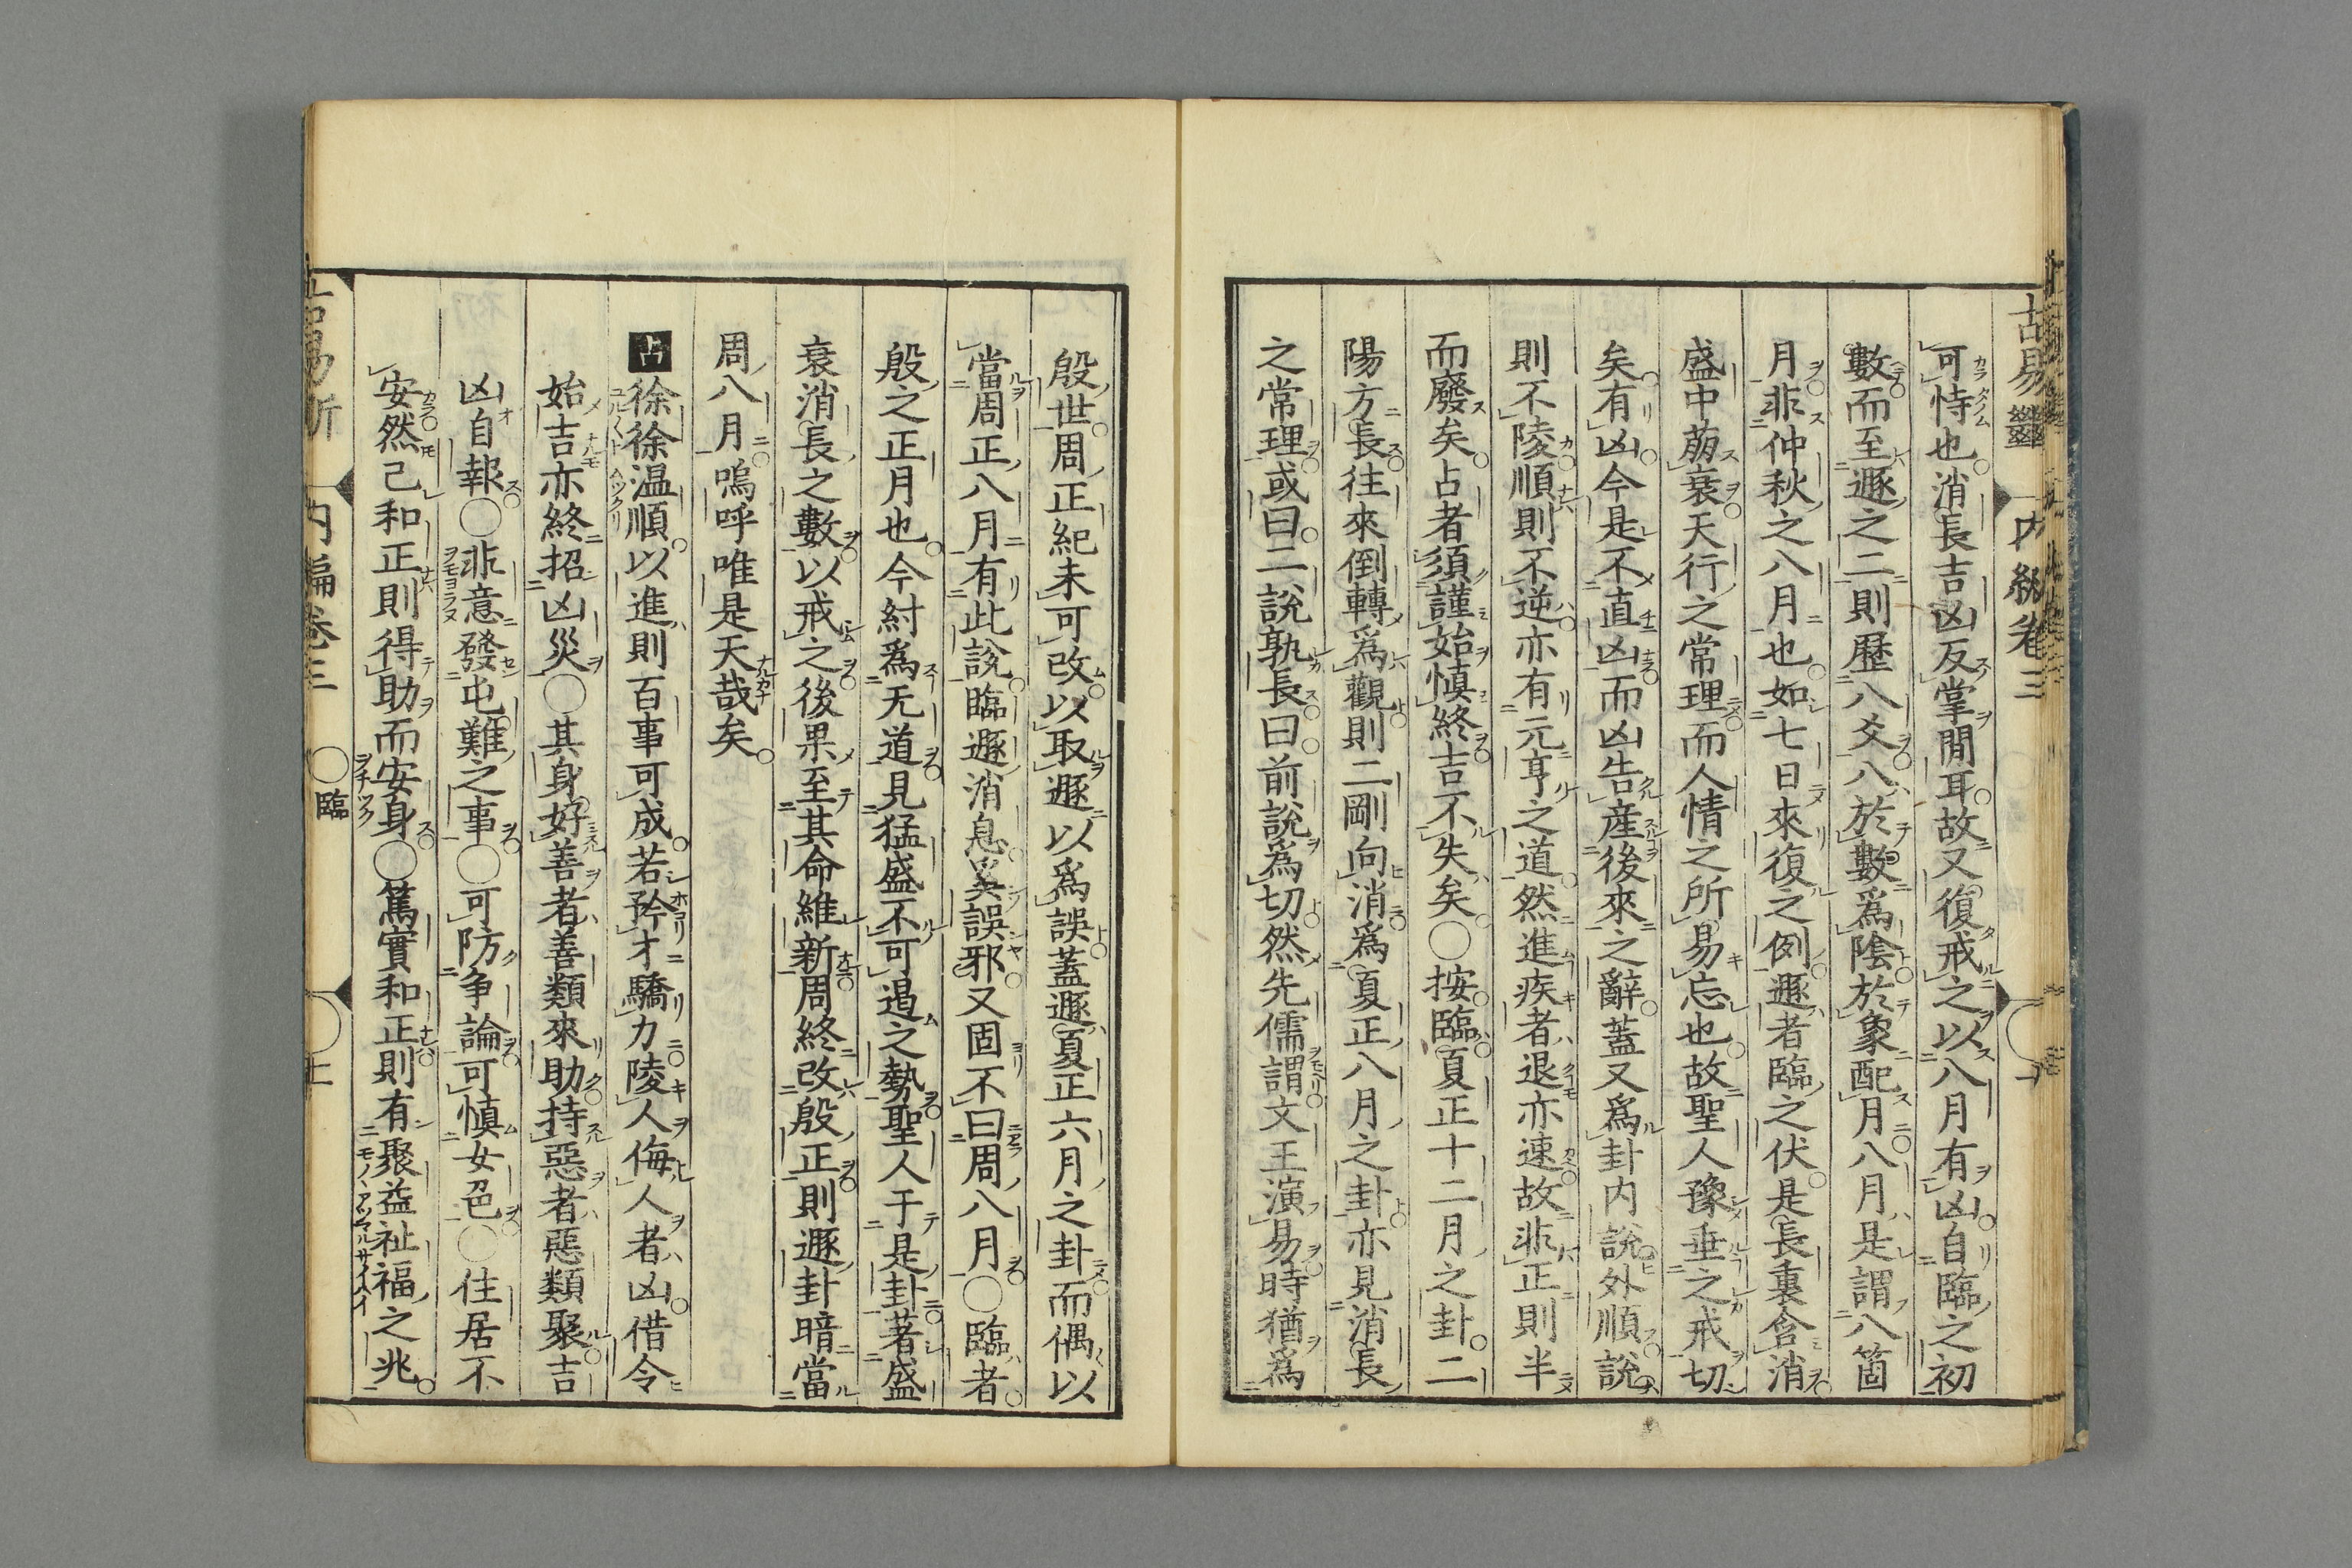 古易斷 内編卷三
可恃也消長吉凶反掌間耳故又復戒之以八月有凶自臨之初
數而至遯之二則歷八爻八於數爲陰於象配月八月是謂八箇
月非仲秋之八月也如七日來復之例遯者臨之伏是長裏含消
盛中萠衰天行之常理而人情之所易忘也故聖人豫垂之戒切
矣有凶今是不直凶而凶告産後來之辭蓋又爲卦内說外順說
則不陵順則不逆亦有元亨之道然進疾者退亦速故非正則半
而廢矣占者須謹始愼終吉不失矣○按臨夏正十二月之卦二
陽方長往來倒轉爲觀則二剛向消爲夏正八月之卦亦見消長
之常理或曰二說孰長曰前說爲切然先儒謂文王演易時猶爲
殷世周正紀未可改以取遯以爲誤蓋遯夏正六月之卦而偶以
當周正八月有此說臨遯消息誤邪又固不曰周八月○臨者
殷之正月也今紂爲无道見猛盛不可遏之勢聖人于是卦著盛
衰消長之數以戒之後果至其命維新周終改殷正則遯卦暗當
周八月嗚呼唯是天哉矣
占 徐徐温順以進則百事可成若矜才驕力陵人侮人者凶借令
始吉亦終招凶災○其身好善者善類來助持惡者惡類聚吉
凶自報○非意發屯難之事○可防争論可愼女色○住居不
安然己和正則得助而安身○篤實和正則有聚益祉福之兆
内編卷三 ○臨